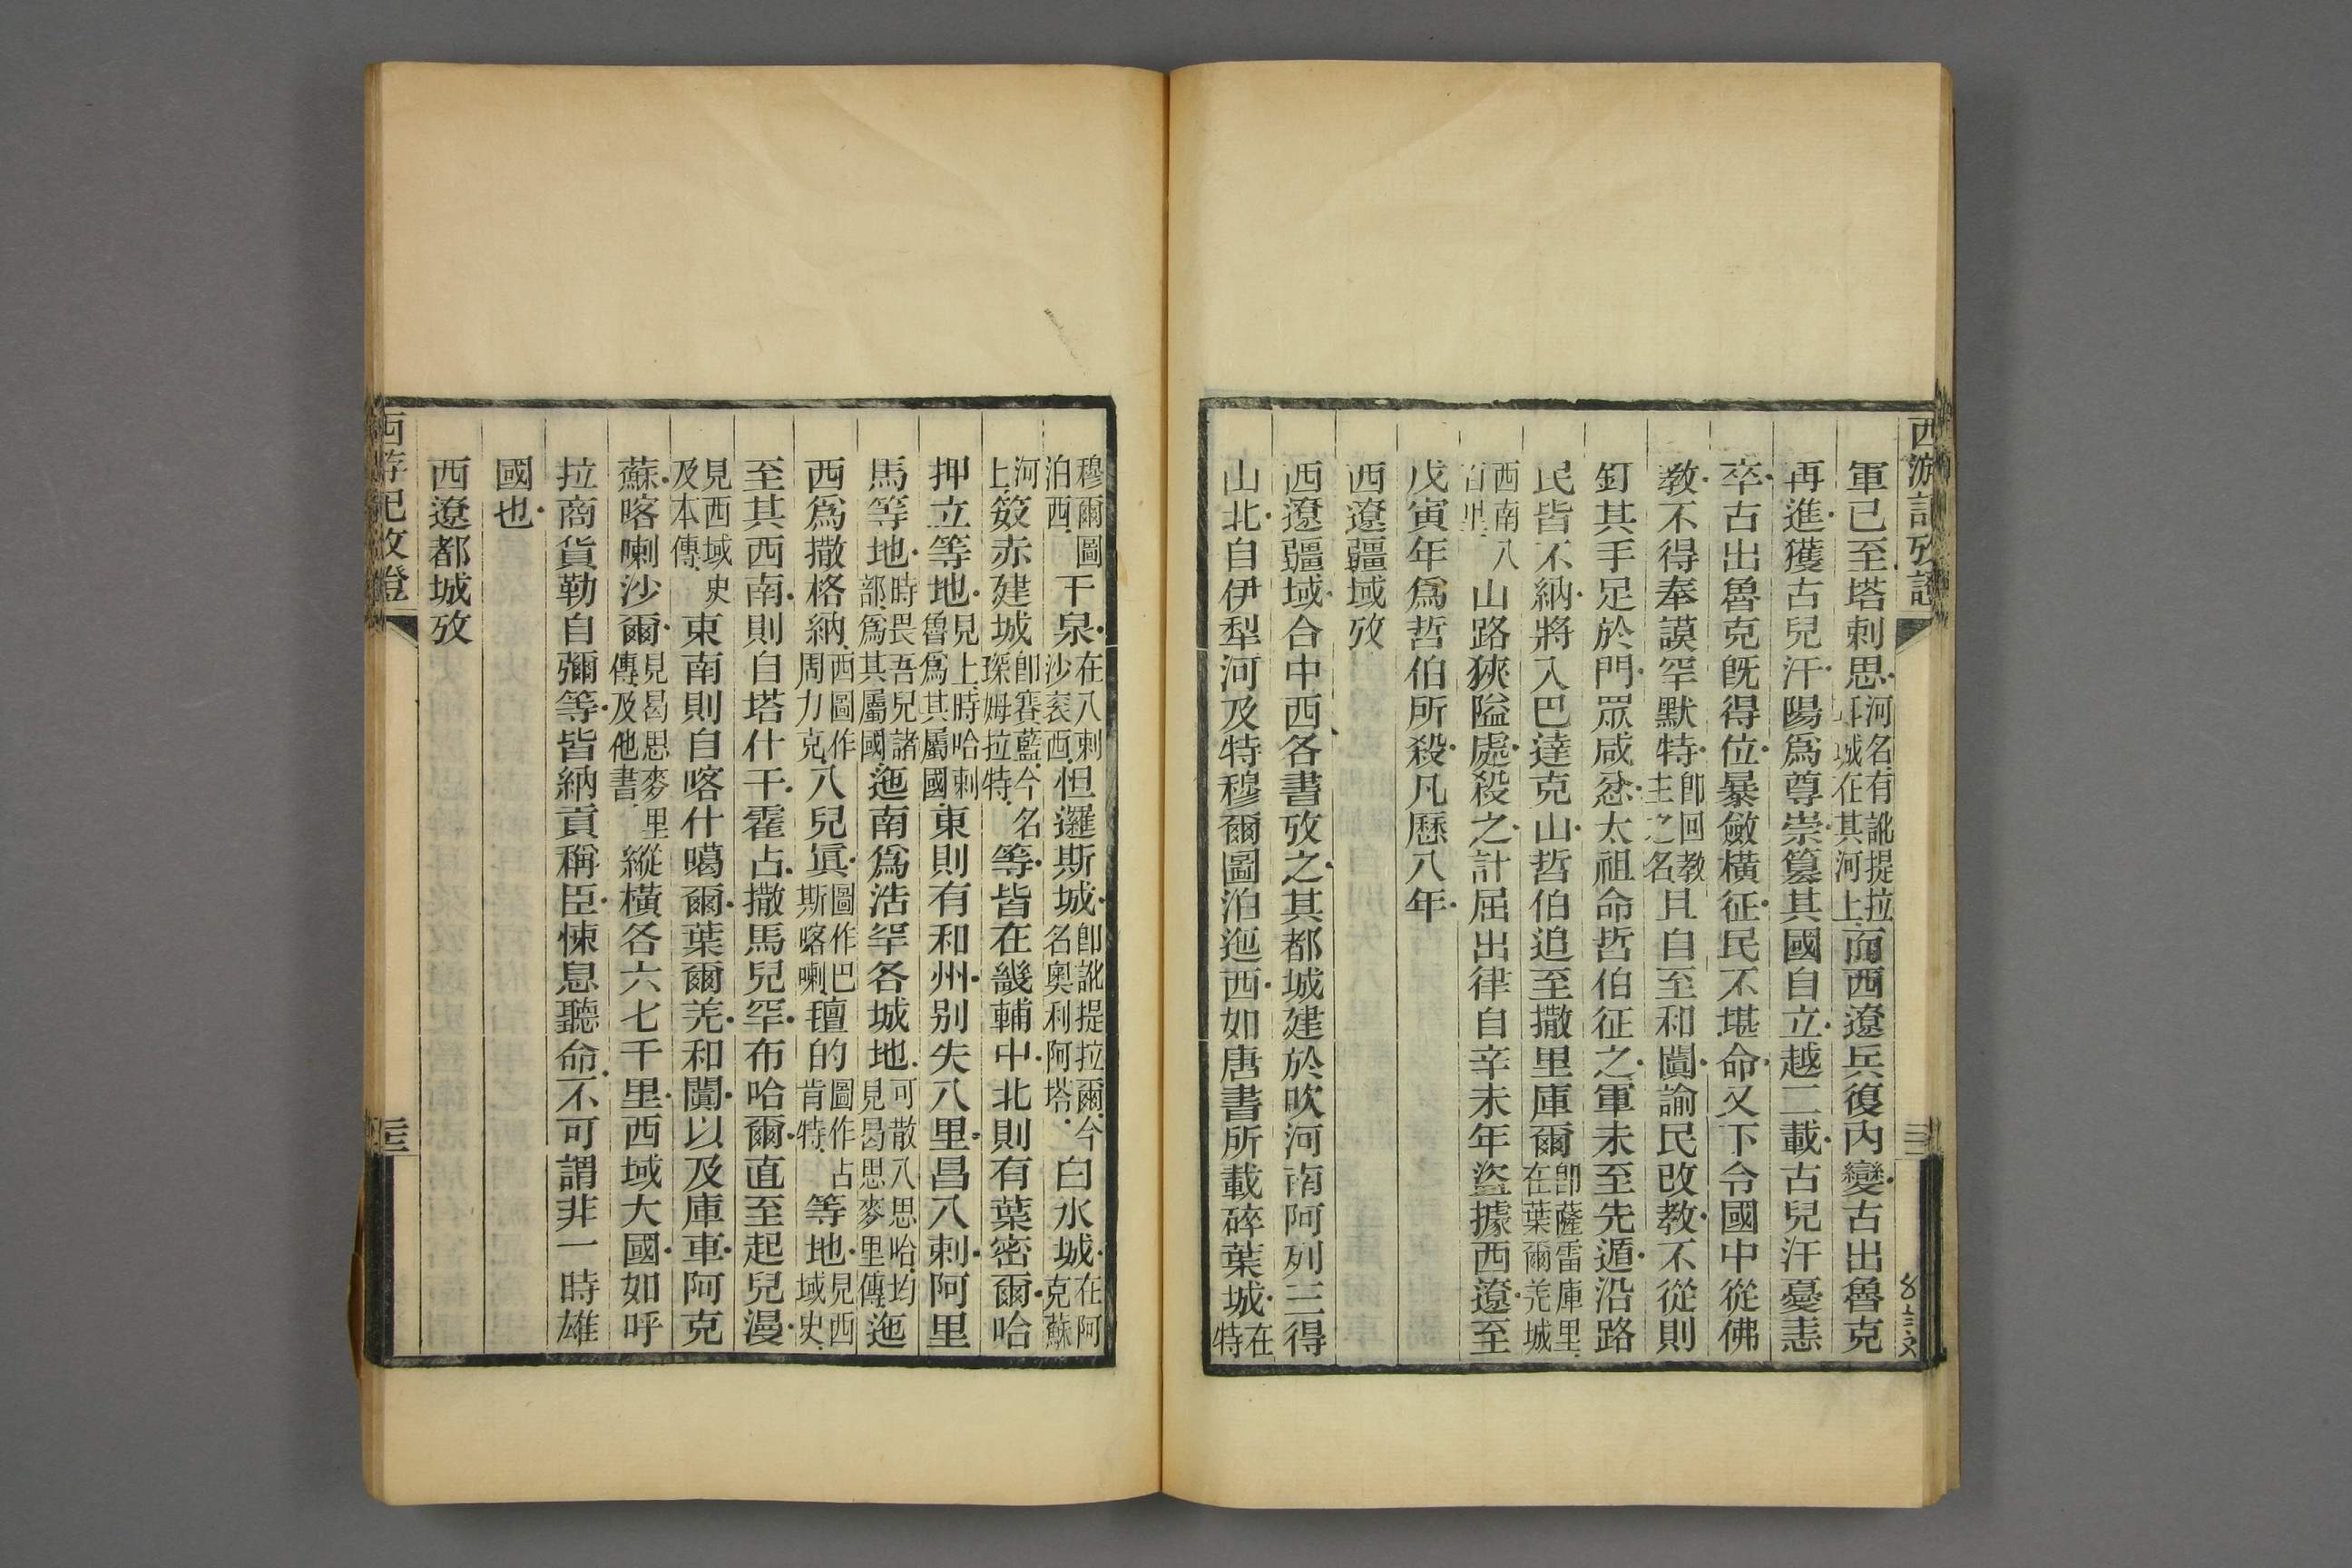 西游記攷證
軍已至塔剌思河名有訛提拉城在其河上而西遼兵復內變古出魯克
再進獲古兒汗陽爲尊崇簒其國自立越二載古兒汗憂恚
卒古出魯克旣得位暴斂橫征民不堪命又下令國中從佛
教不得奉謨罕默特卽回教主之名且自至和闐諭民改教不從則
釘其手足於門眾咸忿太祖命哲伯征之軍未至先遁沿路
民皆不納將入巴達克山哲伯追至撒里庫爾卽薩雷庫里在葉爾羌城
西南八百里山路狹隘處殺之計屈出律自辛未年盜據西遼至
戊寅年爲哲伯所殺凡歷八年
西遼疆域攷
西遼疆域合中西各書攷之其都城建於吹河南阿列三得
山北自伊犁河及特穆爾圖泊迤西如唐書所載碎葉城在特
穆爾圖泊西千泉在八剌沙袞西怛邏斯城卽訛提拉爾今名奧利阿塔白水城在阿克蘇
河上笯赤建城卽賽藍今名琛姆拉特等皆在畿輔中北則有葉密爾哈
押立等地見上時哈剌魯爲其屬國東則有和州别失八里昌八剌阿里
馬等地時畏吾兒諸部爲其屬國迤南爲浩罕各城地可散八思哈均見曷思麥里傳迤
西爲撒格納西圖作周力克八兒眞圖作巴斯喀喇氊的圖作占肯特等地見西域史
至其西南則自塔什干霍占撒馬兒罕布哈爾直至起兒漫
見西域史及本傳東南則自喀什噶爾葉爾羌和闐以及庫車阿克
蘇喀喇沙爾見曷思麥里傳及他書縱橫各六七千里西域大國如呼
拉商貨勒自彌等皆納貢稱臣悚息聽命不可謂非一時雄
國也
西遼都城攷
西游記攷證